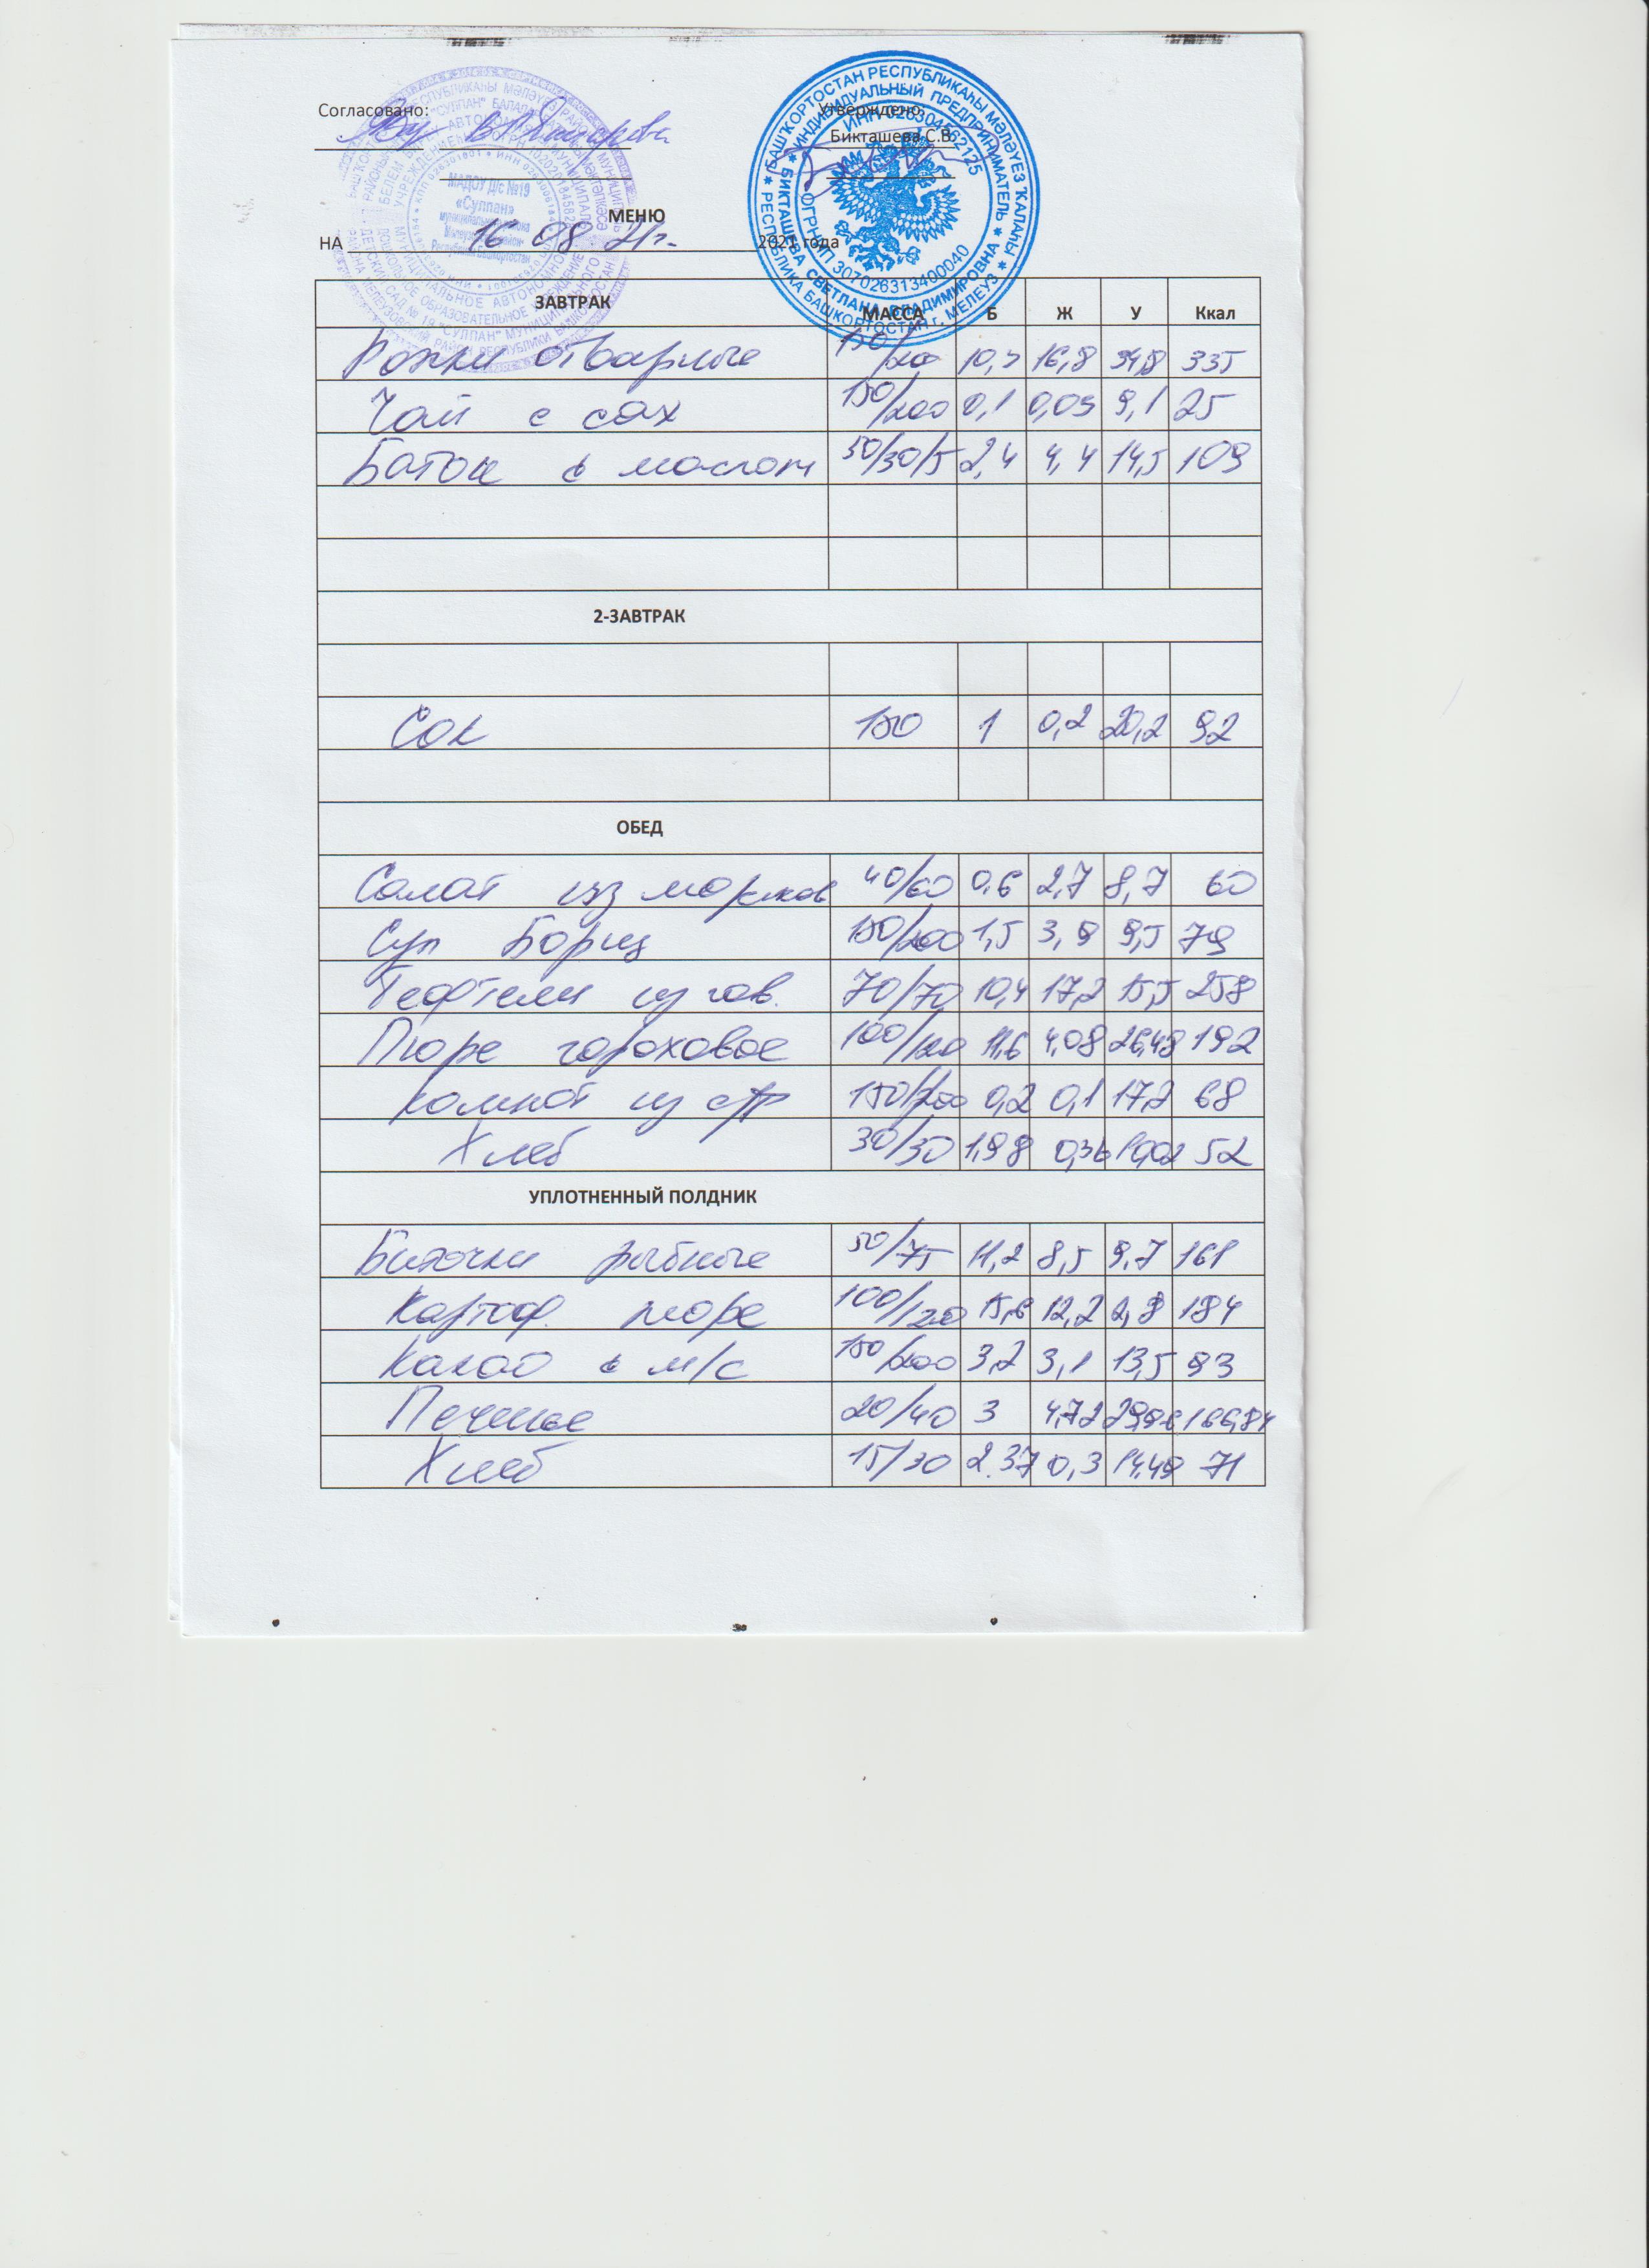 Согласовано:
Утверждено:
Бикташева С.В.
МЕНЮ
НА 16 08 21г. 2021 года
ЗАВТРАК МАССА Б Ж У Ккал
Рожки отварные 150/200 10,3 16,8 34,8 335
Чай с сах 150/200 0,1 0,03 9,1 25
Батон с маслом 50/30/5 2,4 4,4 14,5 109
2-ЗАВТРАК
Сок 150 1 0,2 20,2 92
ОБЕД
Салат из морков 40/60 0,6 2,7 8,7 60
Суп Борщ 150/200 1,5 3,9 9,5 79
Тефтели из гов. 70/70 10,4 17,2 15,5 258
Пюре гороховое 100/120 11,6 4,08 26,48 192
Компот из с/ф 150/200 0,2 0,1 17,2 68
Хлеб 30/30 1,98 0,36 10,02 52
УПЛОТНЕННЫЙ ПОЛДНИК
Биточки рыбные 50/75 11,2 8,5 9,7 161
Картоф. пюре 100/120 15,6 12,2 2,8 184
Какао с м/с 150/200 3,2 3,1 13,5 93
Печенье 20/40 3 4,72 166,84
Хлеб 15/30 2.37 0,3 14,49 71
МАДОУ Д/с №19
«Сулпан»
муниципального района
Мелеузовский район
Республики Башкортостан
БАШҠОРТОСТАН РЕСПУБЛИКАҺЫ МӘЛӘҮЕЗ ҠАЛАҺЫ
РЕСПУБЛИКА БАШКОРТОСТАН г. МЕЛЕУЗ
ИНДИВИДУАЛЬНЫЙ ПРЕДПРИНИМАТЕЛЬ
БИКТАШЕВА СВЕТЛАНА ВЛАДИМИРОВНА
ИНН 026304662125
ОГРНИП 307026313400040